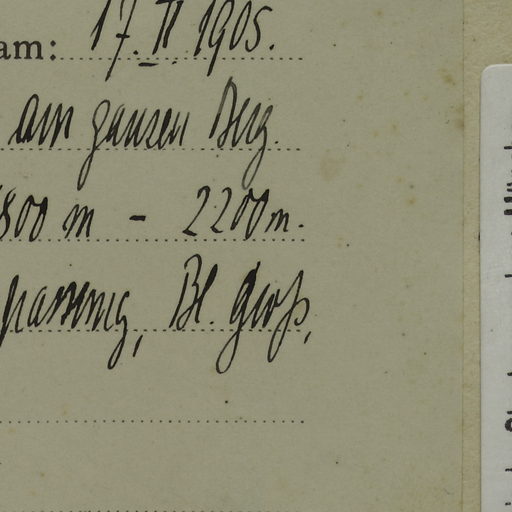 am: 17. II. 1905.
am ganzen Berg.
800 m - 2200 m.
Bl. groß,